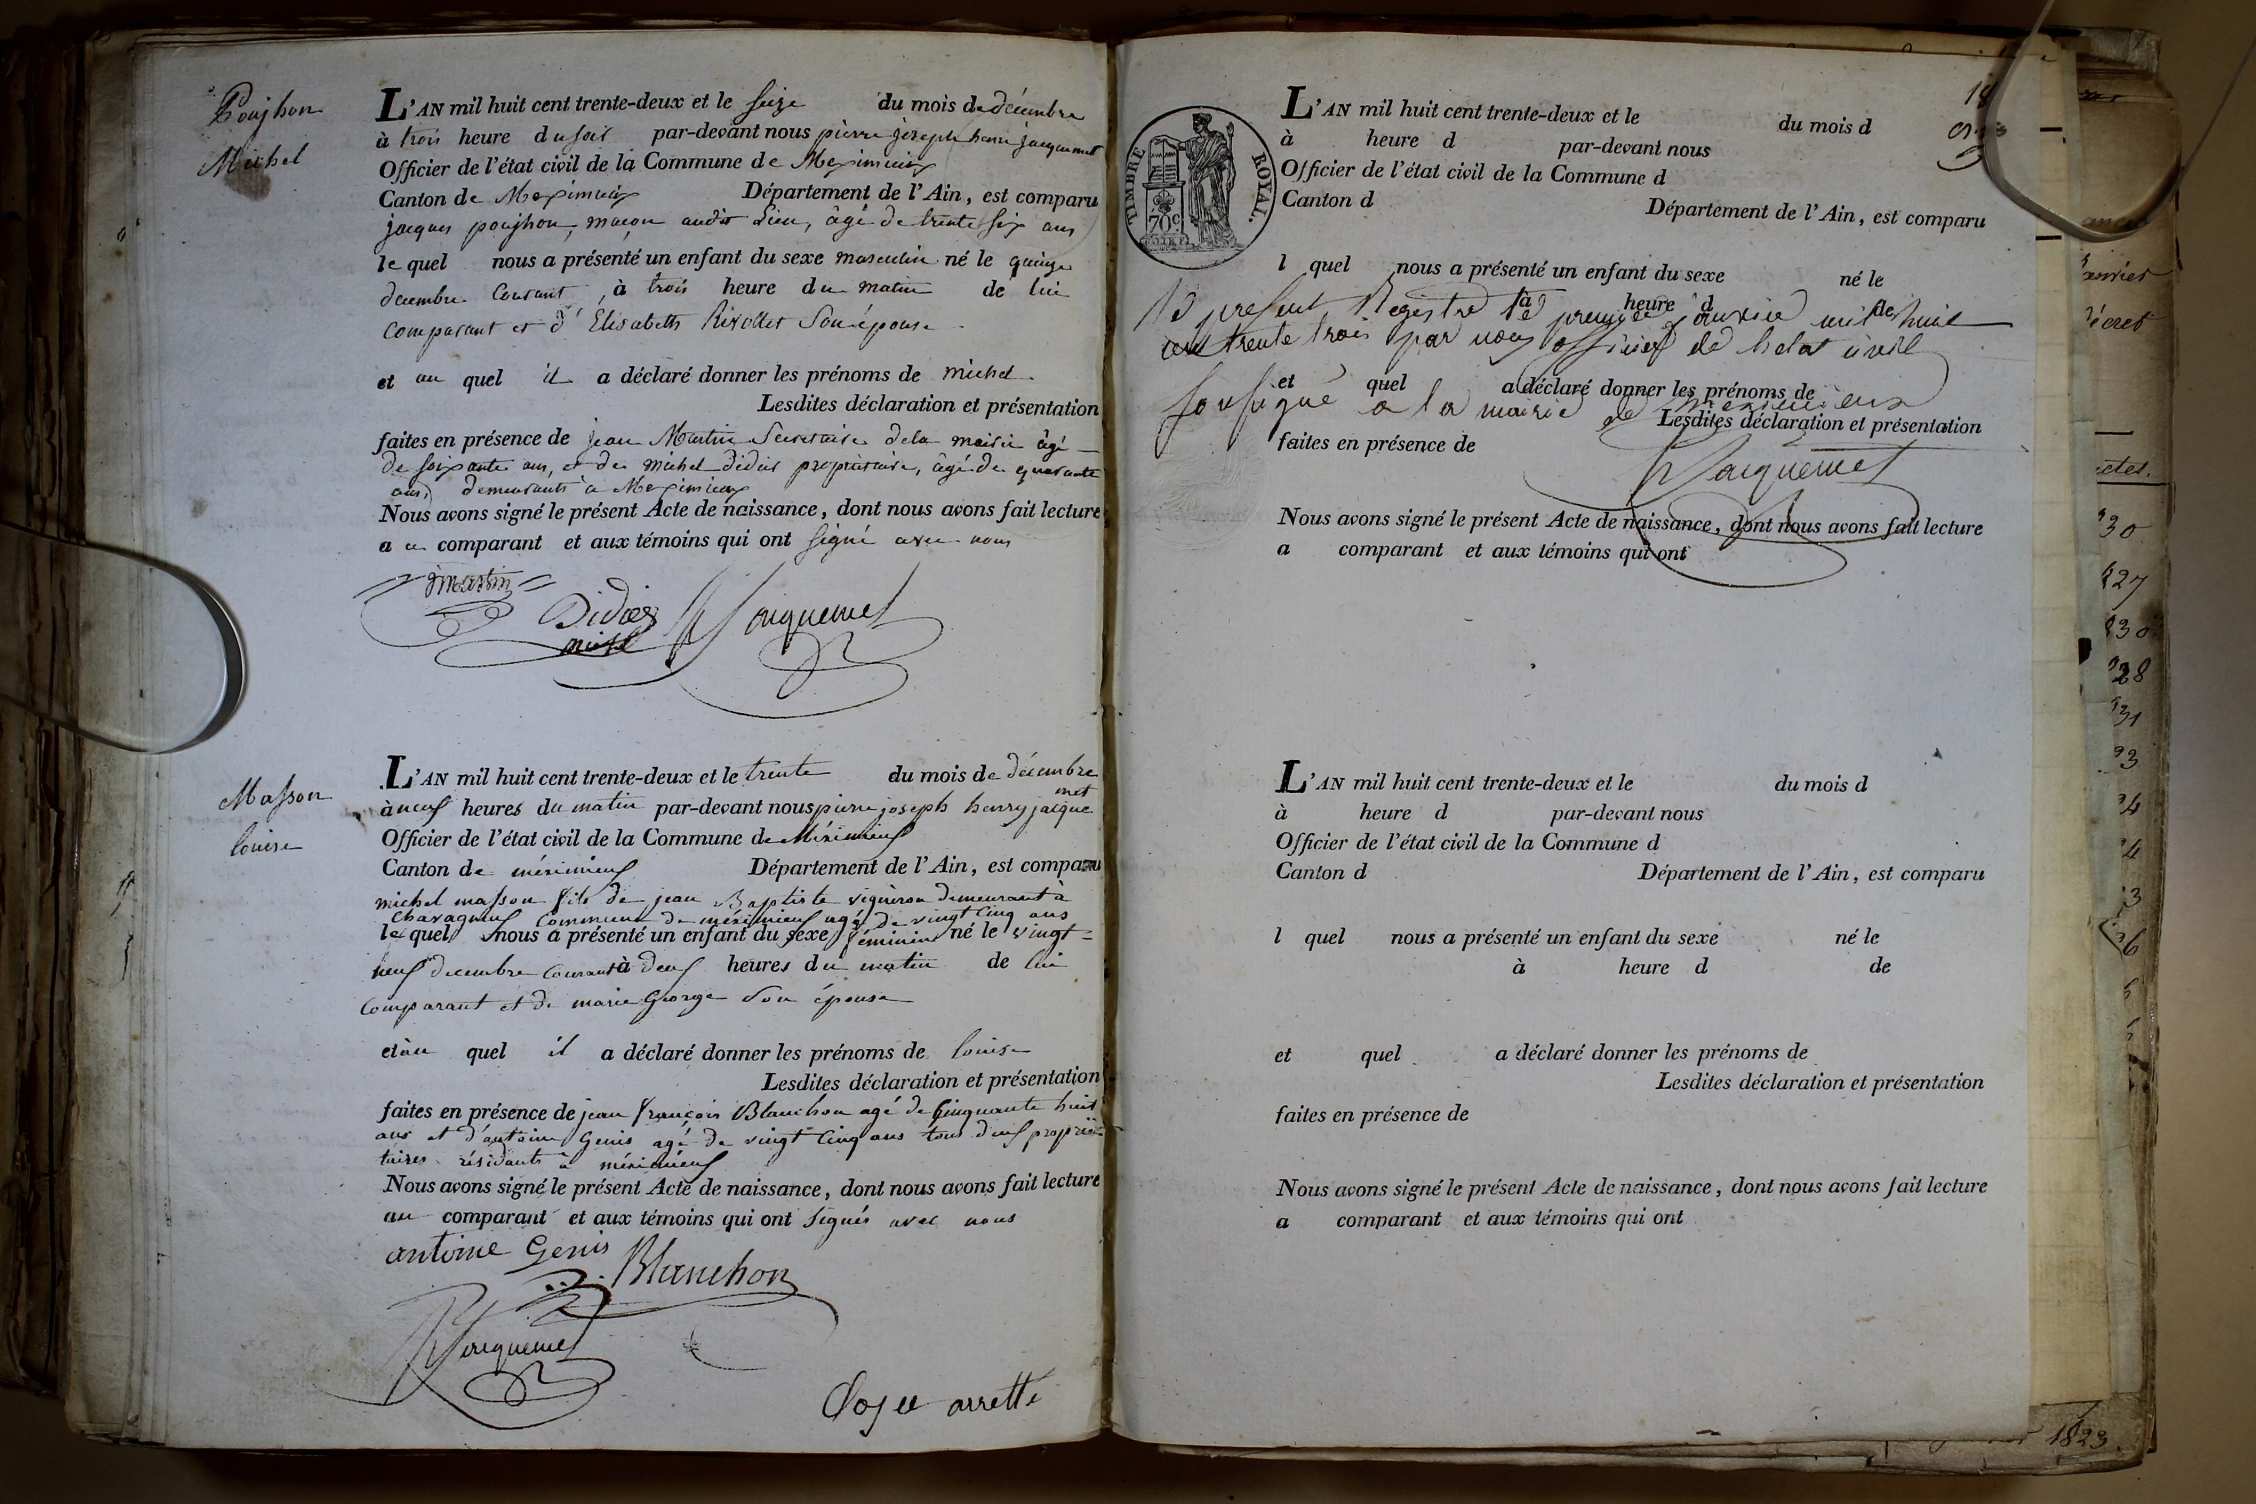 Poujhon
Michel
L'AN mil huit cent trente-deux et le seize du mois de décembre
à trois heure du soir par-devant nous pierre joseph henri jacquemet
Officier de l'état civil de la Commune de Meximieux
Canton de Meximieux Département de l'Ain, est comparu
jacques poujhon, maçon audit Lieu, âgé de trente six ans
le quel nous a présenté un enfant du sexe masculin né le quinze
decembre courant, à trois heure du matin de lui
comparant et d'Elisabeth Rivollet son épouse
et au quel il a déclaré donner les prénoms de michel.
Lesdites déclaration et présentation
faites en présence de jean Martin Secretaire dela mairie âgé
de soixante ans, et de michel didier propriétaire, âgé de quarante
ans, demeurants à Meximieux
Nous avons signé le présent Acte de naissance, dont nous avons fait lecture
a ce comparant et aux témoins qui ont signé avec nous
martin
Didier
michel
Jacquemet
Masson
louise
L'AN mil huit cent trente-deux et le trente du mois de décembre
à neuf heures du matin par-devant nous pierre joseph henry jacque
met
Officier de l'état civil de la Commune de Méximieux
Canton de méximieux Département de l'Ain, est comparu
michel masson fils de jean Baptiste vigneron demeurant à
chavagneux Commune de méximieux agé de vingt cinq ans
le quel nous a présenté un enfant du sexe féminin né le vingt-
neuf decembre courant à deux heures du matin de lui
comparant et de marie George son épouse
et au quel il a déclaré donner les prénoms de louise
Lesdites déclaration et présentation
faites en présence de jean françois Blanchon agé de cinquante huit
ans et d'antoine Genis agé de vingt cinq ans tous deux proprié-
taires résidants à méximieux
Nous avons signé le présent Acte de naissance, dont nous avons fait lecture
au comparant et aux témoins qui ont signés avec nous
antoine Genis
Blanchon
Jacquemet
Clos et arretté
TIMBRE ROYAL.
70c
L'AN mil huit cent trente-deux et le du mois d
à heure d par-devant nous
Officier de l'état civil de la Commune d
Canton d Département de l'Ain, est comparu
l quel nous a présenté un enfant du sexe né le
à heure d de
le present Registre le premier janvier mil huit
cent trente trois par nous officier de l'etat civil
et quel a déclaré donner les prénoms de
soussigné a la mairie de meximieux
Lesdites déclaration et présentation
faites en présence de
Jacquemet
Nous avons signé le présent Acte de naissance, dont nous avons fait lecture
a comparant et aux témoins qui ont
L'AN mil huit cent trente-deux et le du mois d
à heure d par-devant nous
Officier de l'état civil de la Commune d
Canton d Département de l'Ain, est comparu
l quel nous a présenté un enfant du sexe né le
à heure d de
et quel a déclaré donner les prénoms de
Lesdites déclaration et présentation
faites en présence de
Nous avons signé le présent Acte de naissance, dont nous avons fait lecture
a comparant et aux témoins qui ont
1823.